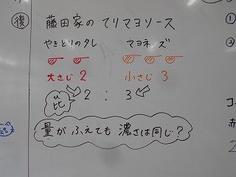 復 藤田家のてりマヨソース
やきとりのタレ マヨネーズ
大さじ 2 小さじ 3
比 2 : 3
量がふえても濃さは同じ?